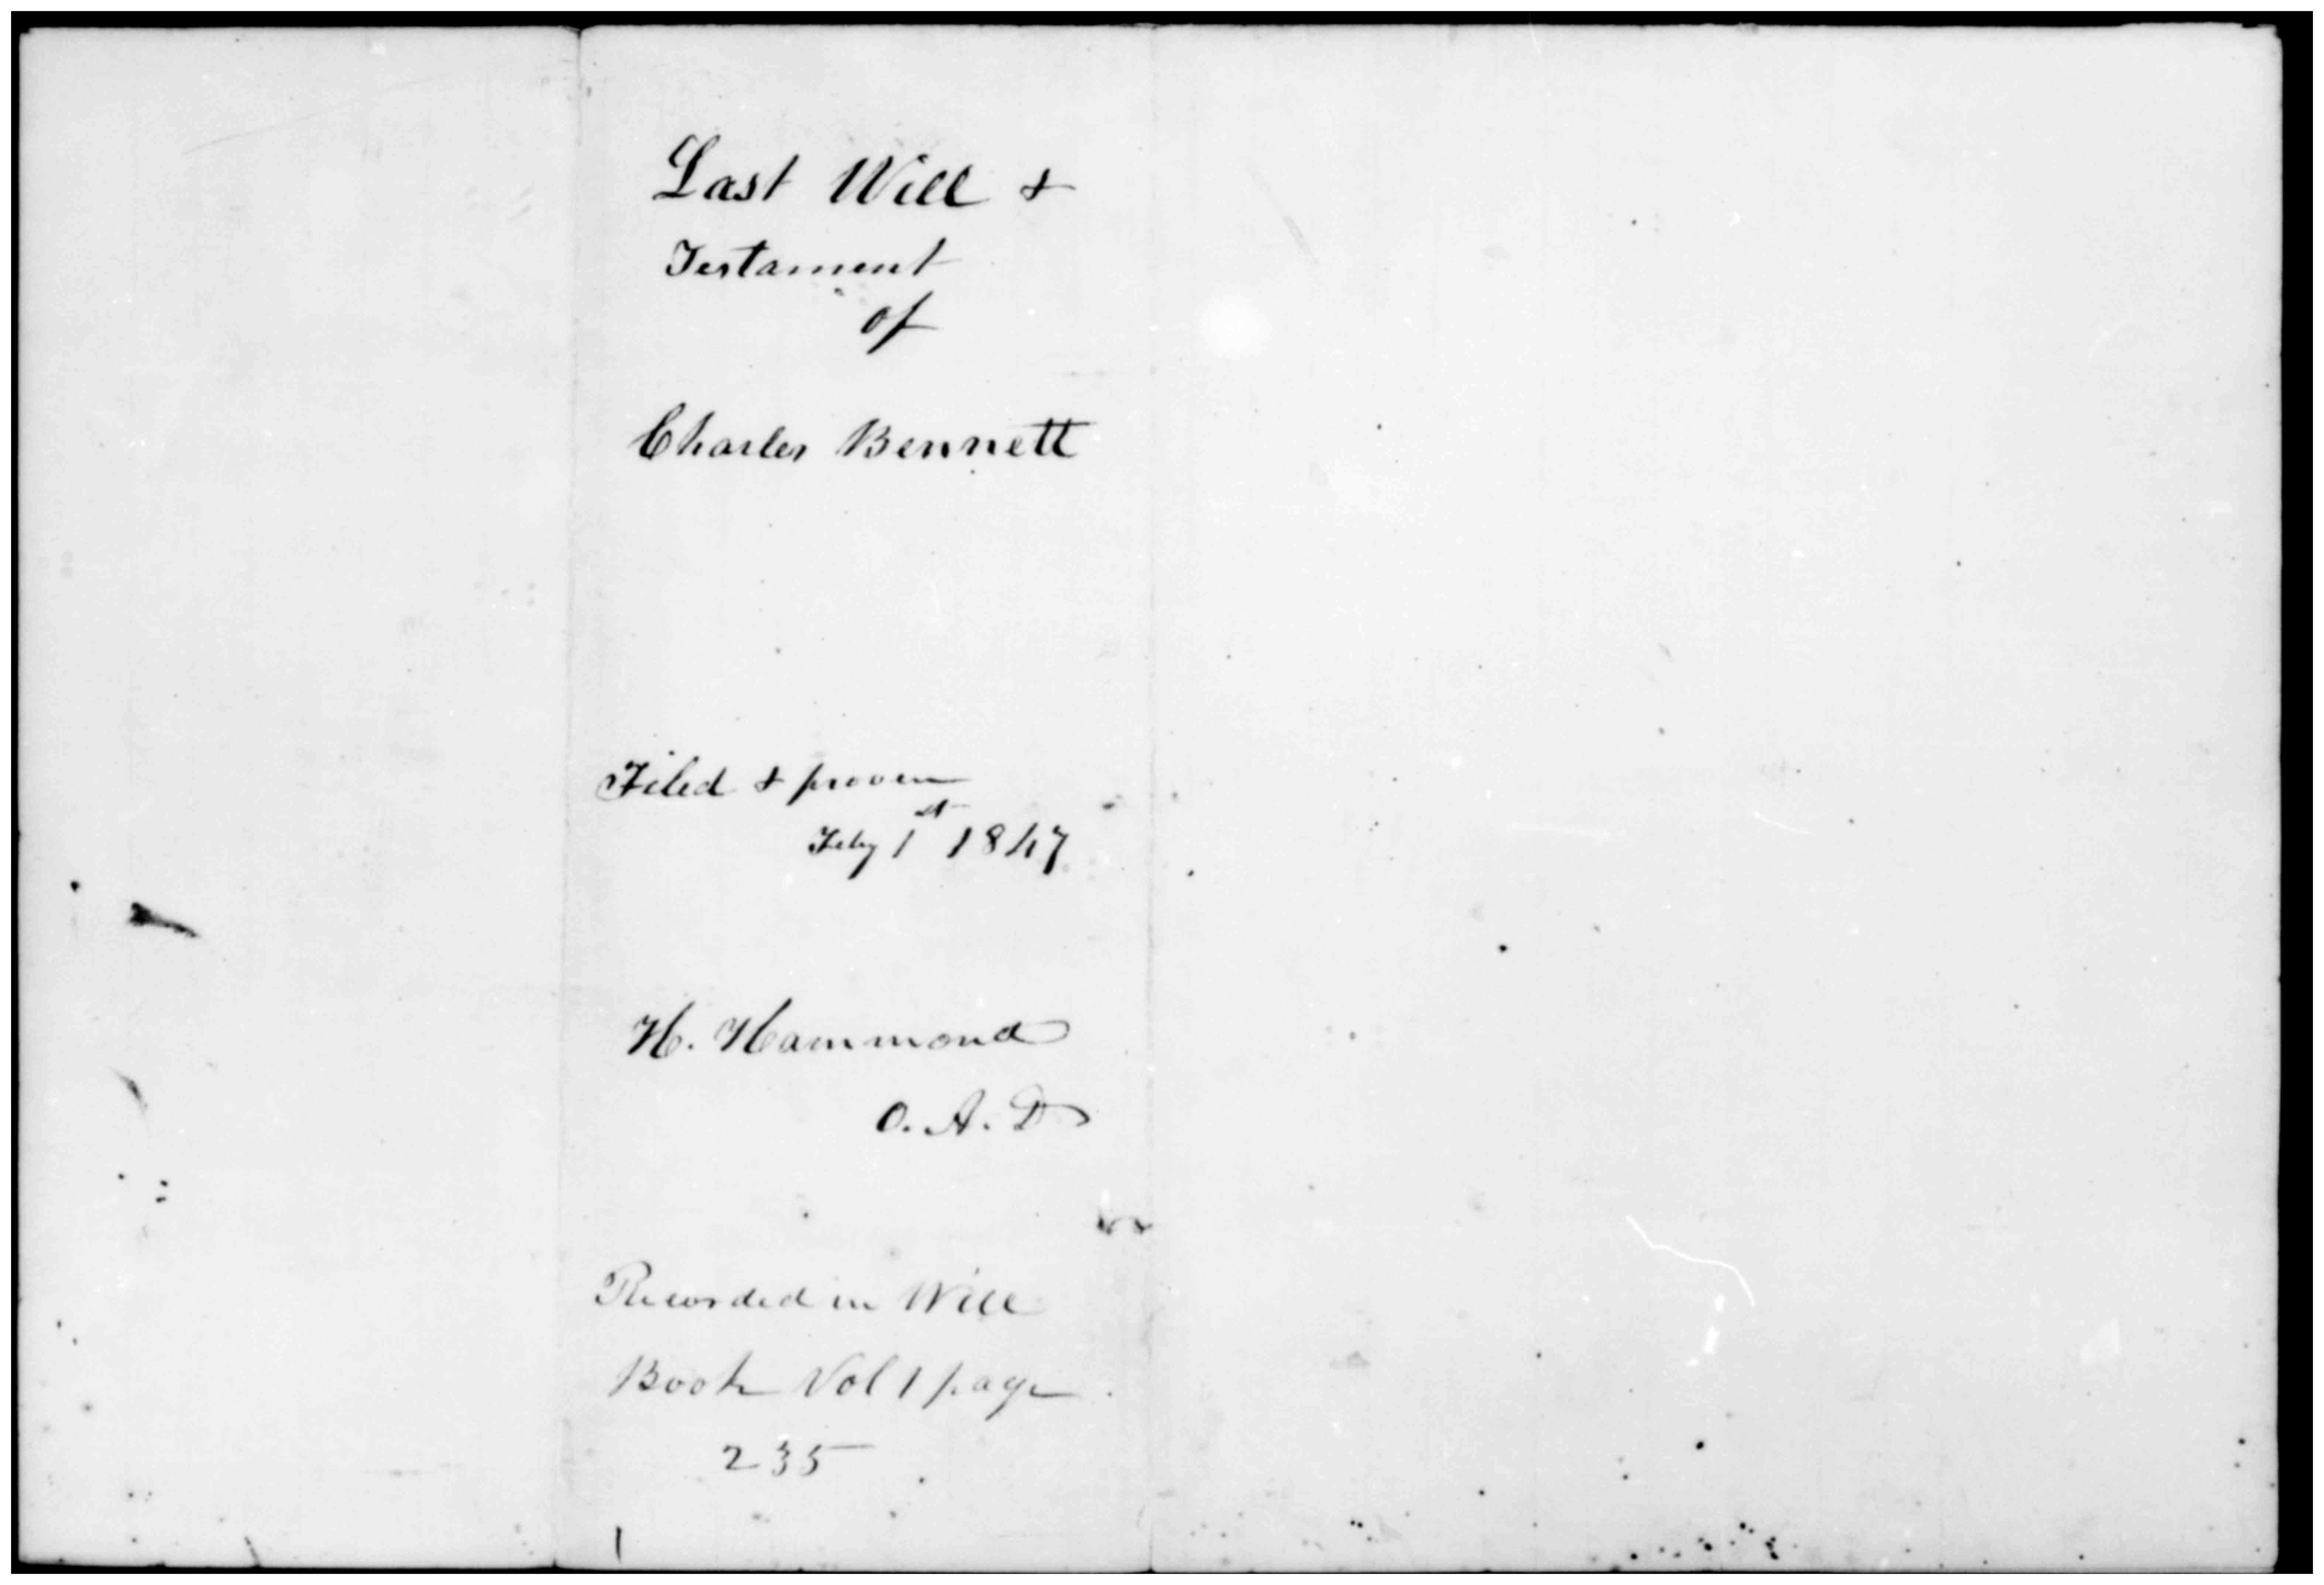 Last Will &
Testament
of
Charles Bennett
Filed & proven
Feby 1st 1847
H. Hammond
O. A. D
Recorded in Will
Book Vol 1 page
235